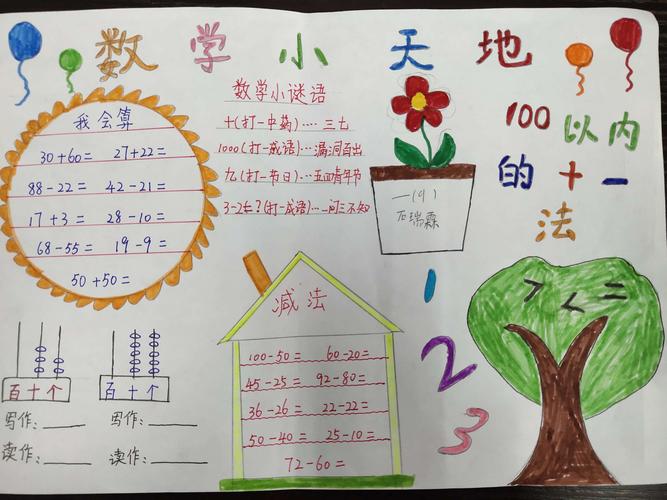 数学小天地
我会算
30+60= 27+22=
88-22= 42-21=
17+3= 28-10=
68-55= 19-9=
50+50=
数学小谜语
十(打一中药)….三七
1000(打一成语)…漏洞百出
九(打一节日)…五四青年节
3-2=?(打一成语)…一问三不知
一(9)
石瑞霖
100以内
的+-
法
百十个 百十个
写作:____ 写作:____
读作:____ 读作:____
减法
100-50= 60-20=
45-25= 92-80=
36-26= 22-22=
50-40= 25-10=
72-60=
1
2
3
> < =